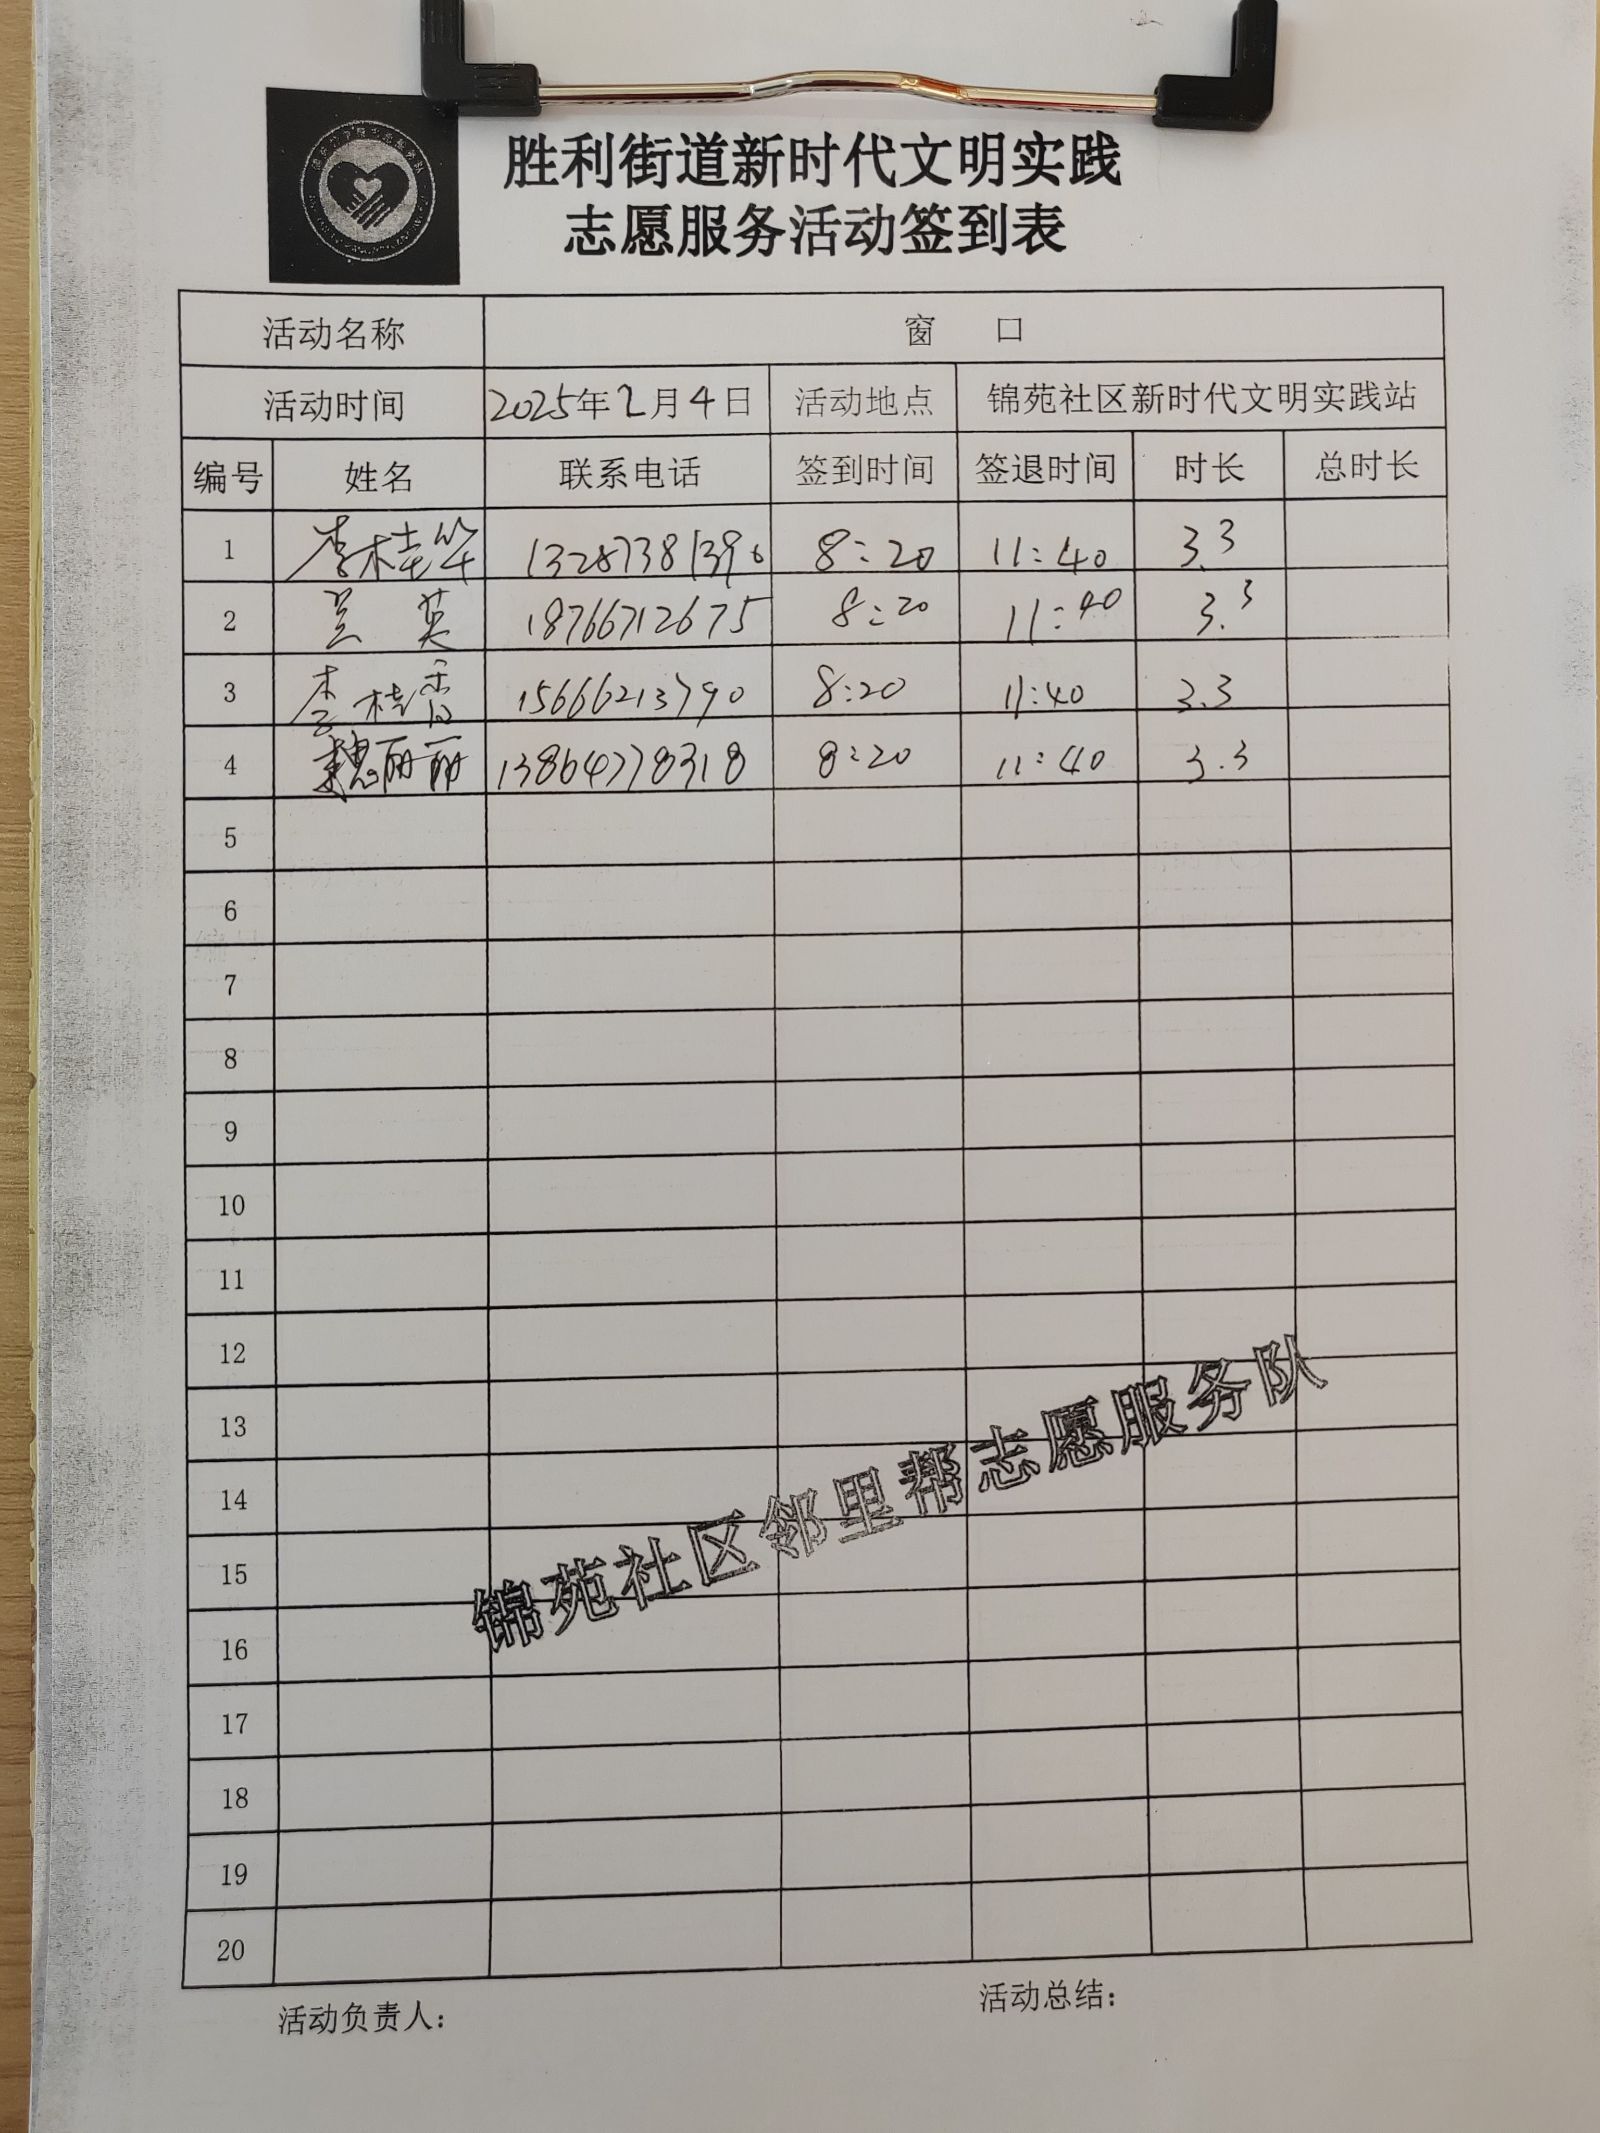 胜利街道新时代文明实践
志愿服务活动签到表
活动名称 窗 口
活动时间 2025年2月4日 活动地点 锦苑社区新时代文明实践站
编号 姓名 联系电话 签到时间 签退时间 时长 总时长
1 李桂华 13287381396 8:20 11:40 3.3
2 兰英 18766712675 8:20 11:40 3.3
3 李桂香 15666213790 8:20 11:40 3.3
4 魏丽丽 13864778318 8:20 11:40 3.3
5
6
7
8
9
10
11
12
13
14
15
16
17
18
19
20
锦苑社区邻里帮志愿服务队
活动负责人: 活动总结: